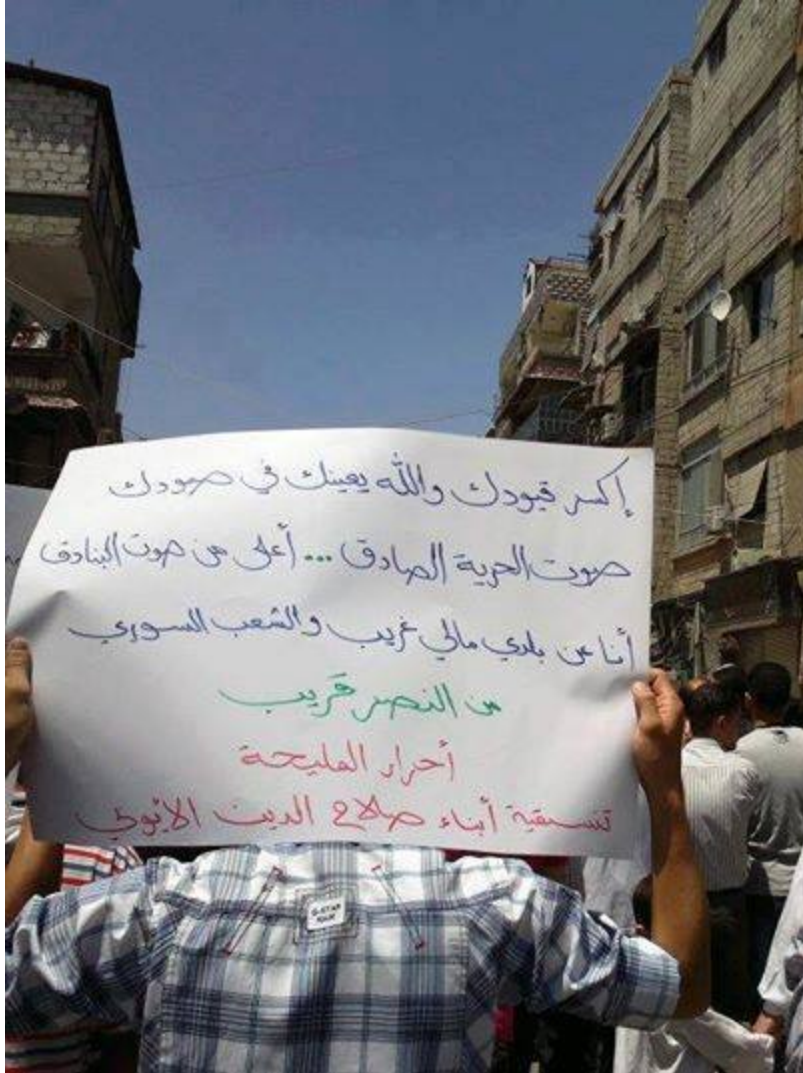 إكسر قيودك والله يعينك في صمودك
صوت الحرية الصادق ... أعلى من صوت البنادق
أنا عن بلدي مالي غريب والشعب السوري
من النصر قريب
أحرار المليحة
تنسيقية أبناء صلاح الدين الايوبي